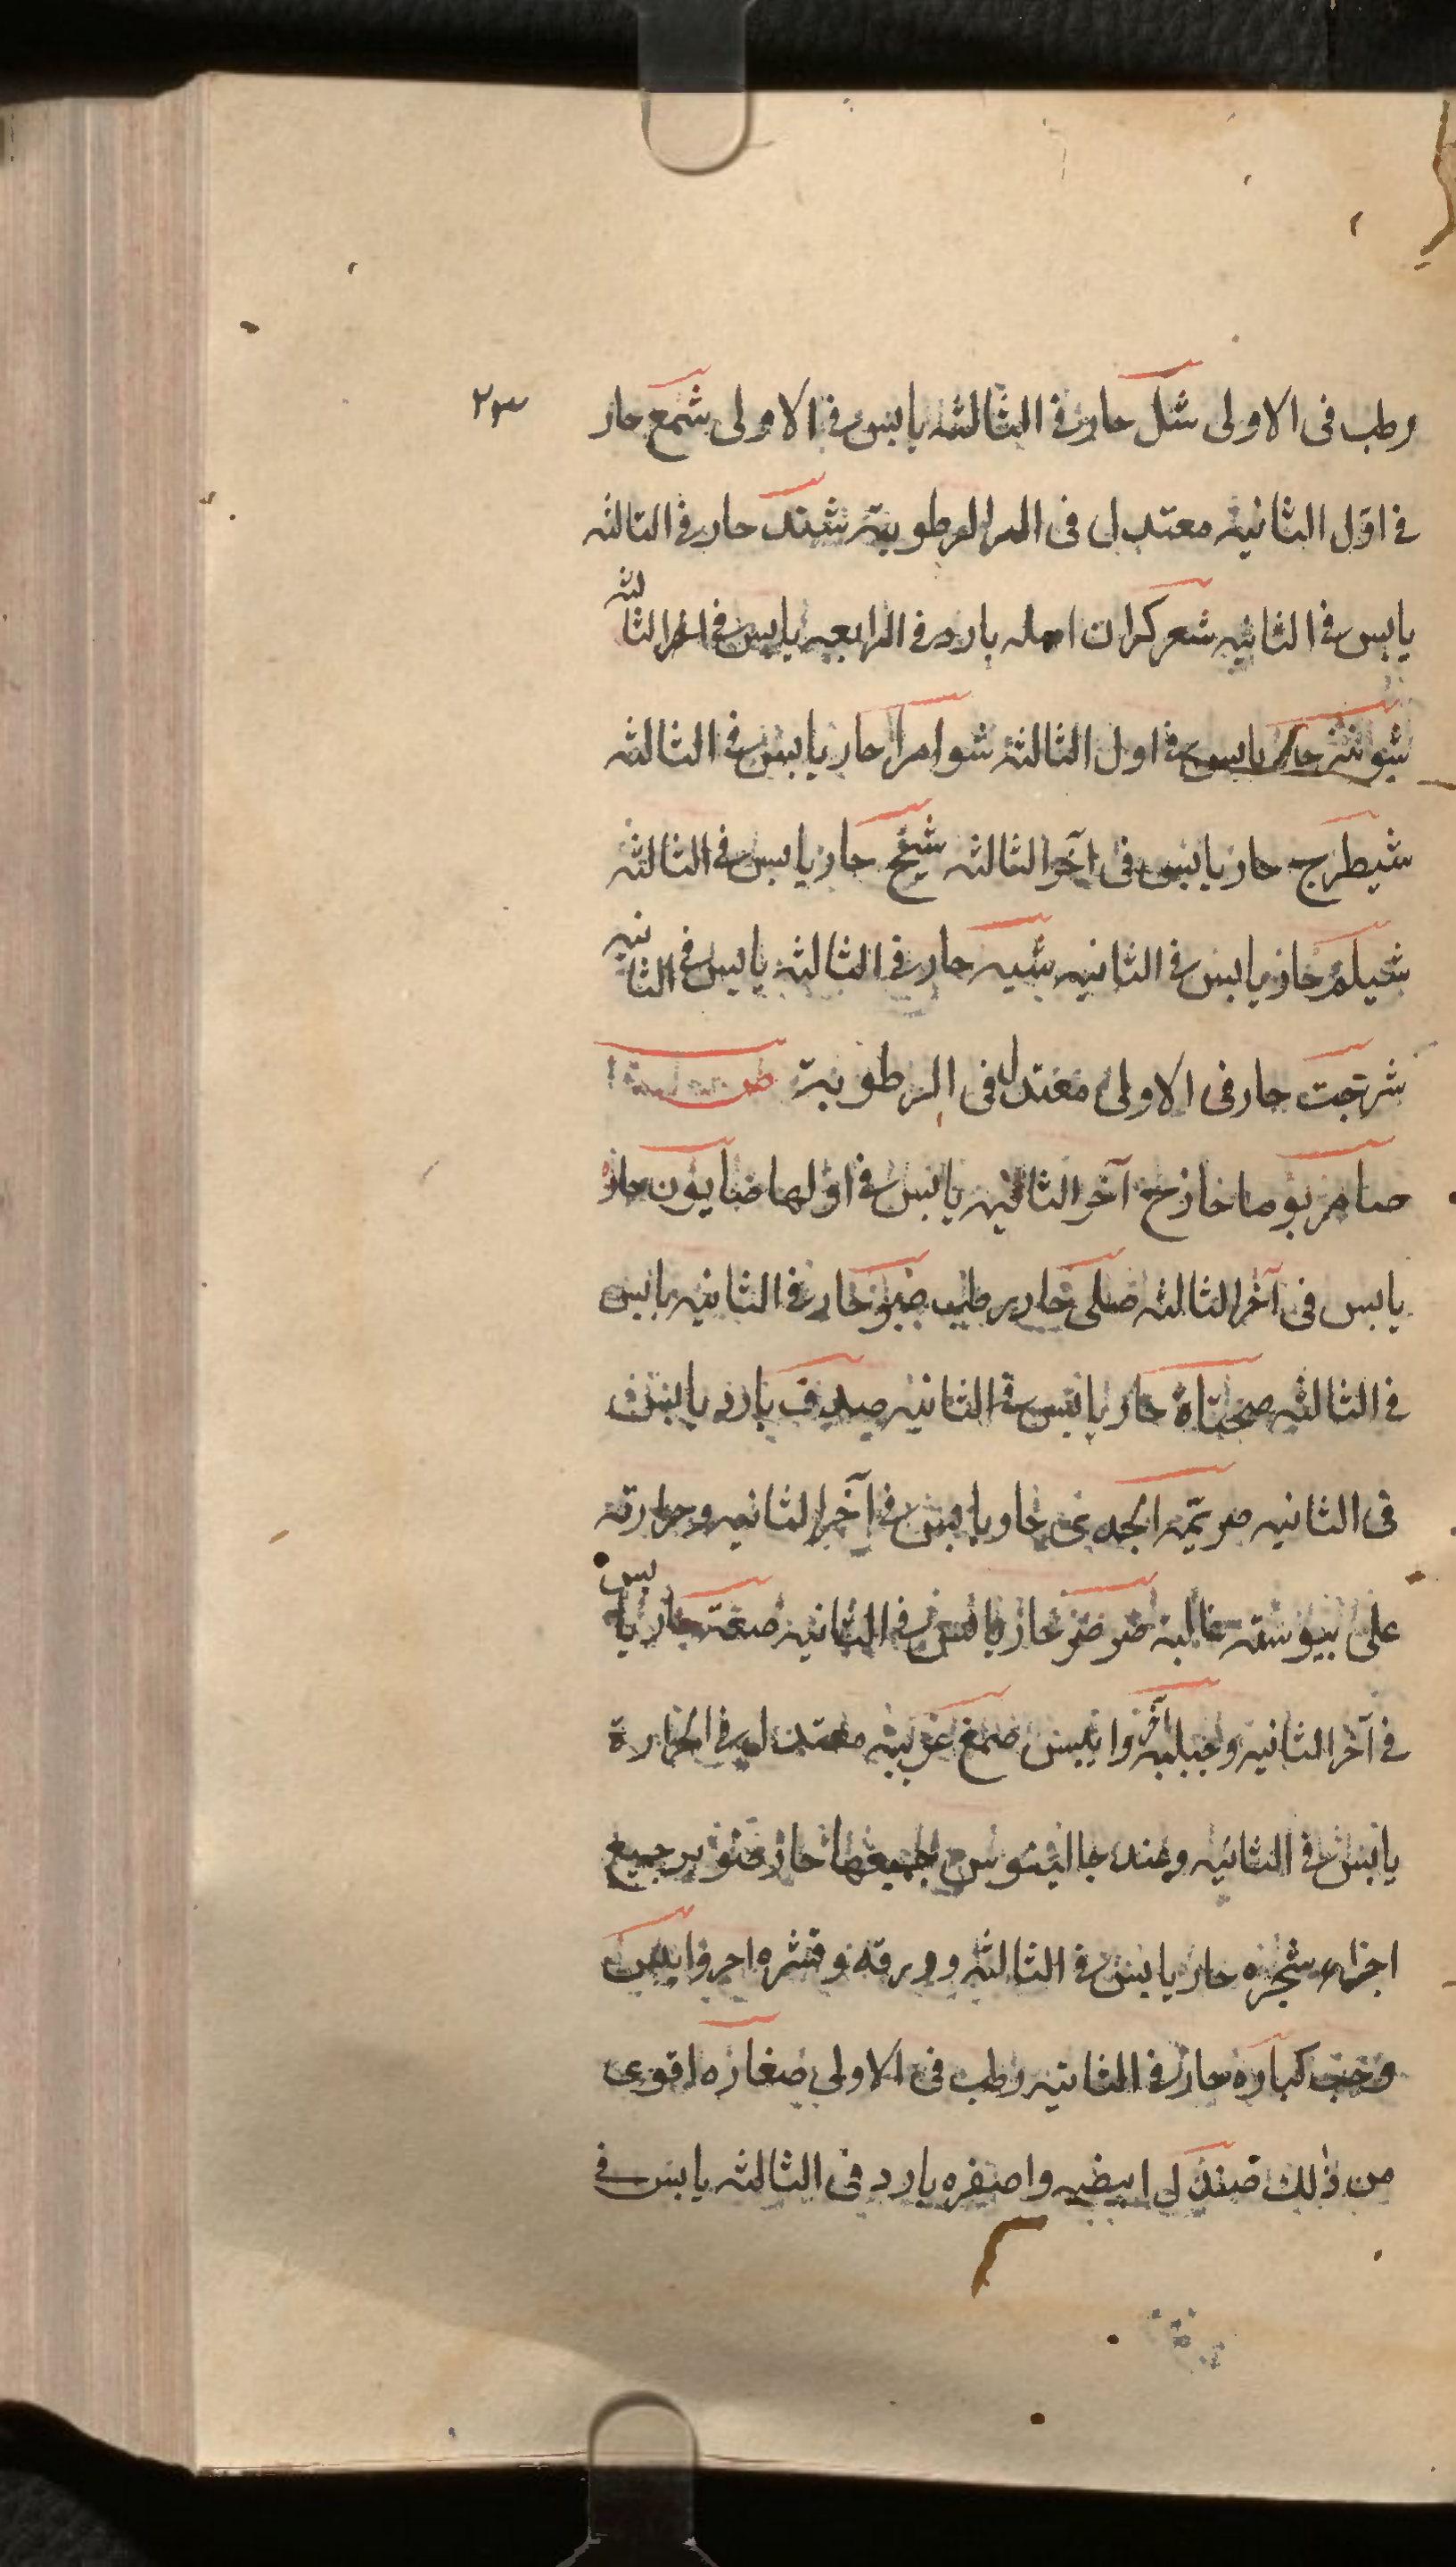 رطب فى الاولى شل حار فى الثالثه يابس فى الاولى شمع حار
٢٣
فى اول الثانيه معتدل فى الرطوبة شنك حار فى الثالثه
يابس فى الثانيه شعركران اصله بارد فى الرابعه يابس فى اخر الثالثه
شونيز حار يابس فى اول الثالثة شوامرا حار يابس فى الثالثه
شيطرج حار يابس فى آخر الثالثه شيح حار يابس فى الثالثه
شيلم حار يابس فى الثانيه شيه حار فى الثالثه يابس فى الثانيه
شرجت حار فى الاولى معتدل فى الرطوبة
صامريوما حار آخر الثانيه يابس فى اولها صابون حار
يابس فى آخر الثالثه صلى حار رطب صبر حار فى الثانيه يابس
فى الثالثه صحناة حار يابس فى الثانيه صدف بارد يابس
فى الثانيه صريمة الجدى حار يابس فى آخر الثانيه وحرارته
على يبوسته غالبة صرصر حار يابس فى الثانيه حار يابس
فى آخر الثانيه وجبليه احر وايبس صمغ عربيه معتدل فى الحرارة
يابس فى الثانيه وعند جالينوس جميعها حار صنوبر جميع
اجزاء شجره حار يابس فى الثالثه وورقه وقشره احر وايبس
وحب كباره حار فى الثانيه رطب فى الاولى صغاره اقوى
من ذلك صندل ابيضه واصفره بارد فى الثالثه يابس فى